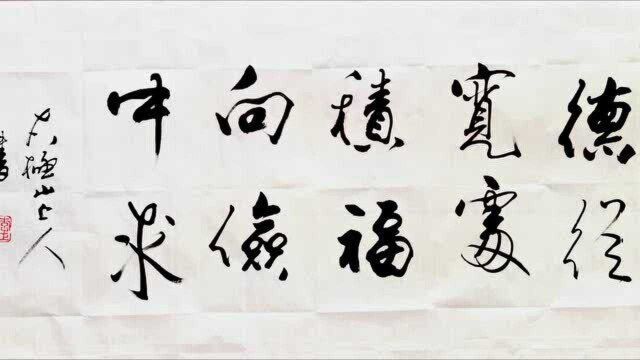 德從
寬處
積福
向儉
中求
山上人